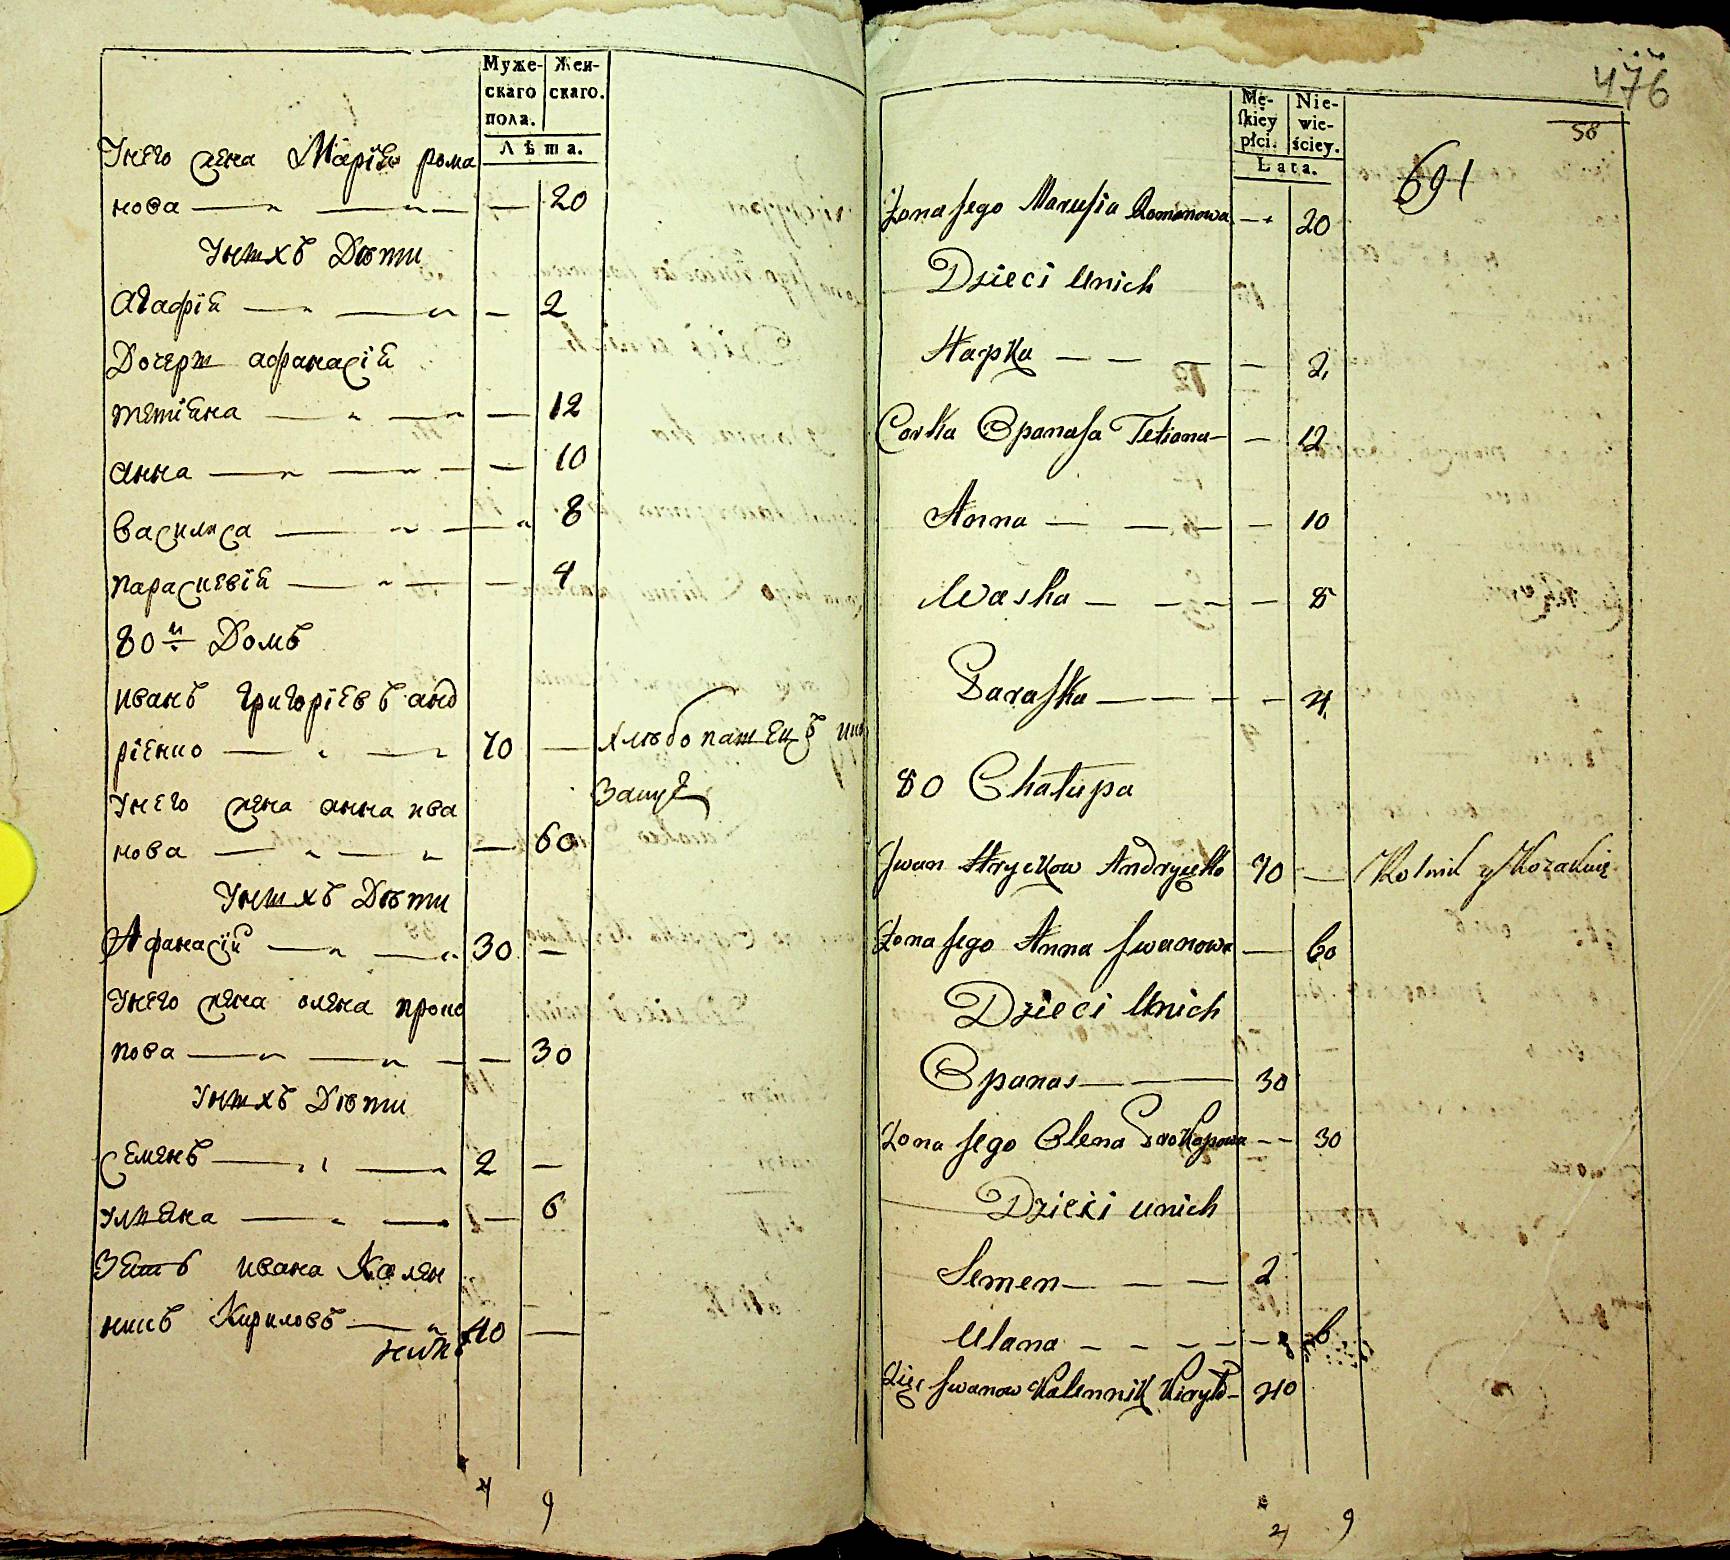 Муже- Жен-
скаго скаго.
пола.
Лѣта.
Унего жена Марія рома
нова — — — 20
Унихъ Дѣти
Агафія — — — 2
Дочери афанасія
тетіана — — — 12
анна — — — 10
василиса — — 8
параскевія — — — 4
80й Домъ
иванъ григоріевъ анд
рієнко — — 70 — хлѣбопашецъ
Унего жена анна ива
нова — — — 60
Унихъ Дѣти
Афанасій — — 30 —
Унего жена олена проко
пова — — — 30
Унихъ Дѣти
Семенъ — — 2 —
улияна — — — 6
Зять ивана Кален
никъ Кириловъ — 40 —
4 9
476
58
Mę- Nie-
skiey wie-
płci. ściey.
Lata.
691
Żona Jego Marusia Romanowa — 20
Dzieci Unich
Hapka — — — 2
Corka Opanasa Tetiana — — 12
Anna — — — — 10
Waska — — — — 8
Paraska — — — — 4
80 Chałupa
Iwan Hryckow Andryęko 70 — Rolnik y
Żona Jego Anna Iwanowa — 60
Dzieci Unich
Opanas — — 30
Żona Jego Olena Prokopowa — — 30
Dzieci unich
Semen — — — 2
Ulana — — — — — 6
Zięć Iwanow Kalennik Kiryło — 40
4 9